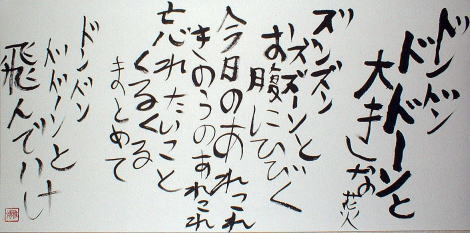 ドンドン
ドドーンと
大きな
花火
ズンズン
ズズーンと
お腹にひびく
今日のあれこれ
きのうのあれこれ
忘れたいこと
くるくる
まとめて
ドンドン
ドドーンと
飛んでいけ